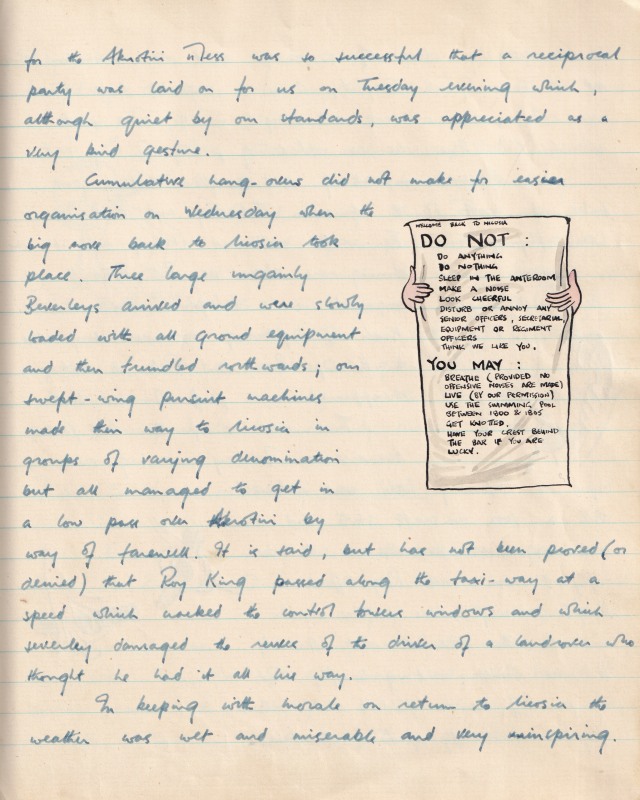 for the Akrotiri Mess was so successful that a reciprocal
party was laid on for us on Tuesday evening which,
although quiet by our standards, was appreciated as a
very kind gesture.
Cumulative hang-overs did not make for easier
organisation on Wednesday when the
big move back to Nicosia took
place. Three large ungainly
Beverleys arrived and were slowly
loaded with all ground equipment
and then trundled northwards; our
swept-wing pursuit machines
made their way to Nicosia in
groups of varying denomination
but all managed to get in
a low pass over Akrotiri by
way of farewell. It is said, but has not been proved (or
denied) that Roy King passed along the taxi-way at a
speed which cracked the control towers windows and which
severley damaged the nerves of the driver of a landrover who
thought he had it all his way.
In keeping with morale on return to Nicosia the
weather was wet and miserable and very uninspiring.
WELCOME BACK TO NICOSIA
DO NOT :
DO ANYTHING
DO NOTHING
SLEEP IN THE ANTEROOM
MAKE A NOISE
LOOK CHEERFUL
DISTURB OR ANNOY ANY
SENIOR OFFICERS, SECRETARIAL,
EQUIPMENT OR REGIMENT
OFFICERS
THINK WE LIKE YOU.
YOU MAY :
BREATHE (PROVIDED NO
OFFENSIVE NOISES ARE MADE)
LIVE (BY OUR PERMISSION)
USE THE SWIMMING POOL
BETWEEN 1800 & 1805
GET KNOTTED.
HAVE YOUR CREST BEHIND
THE BAR IF YOU ARE
LUCKY.